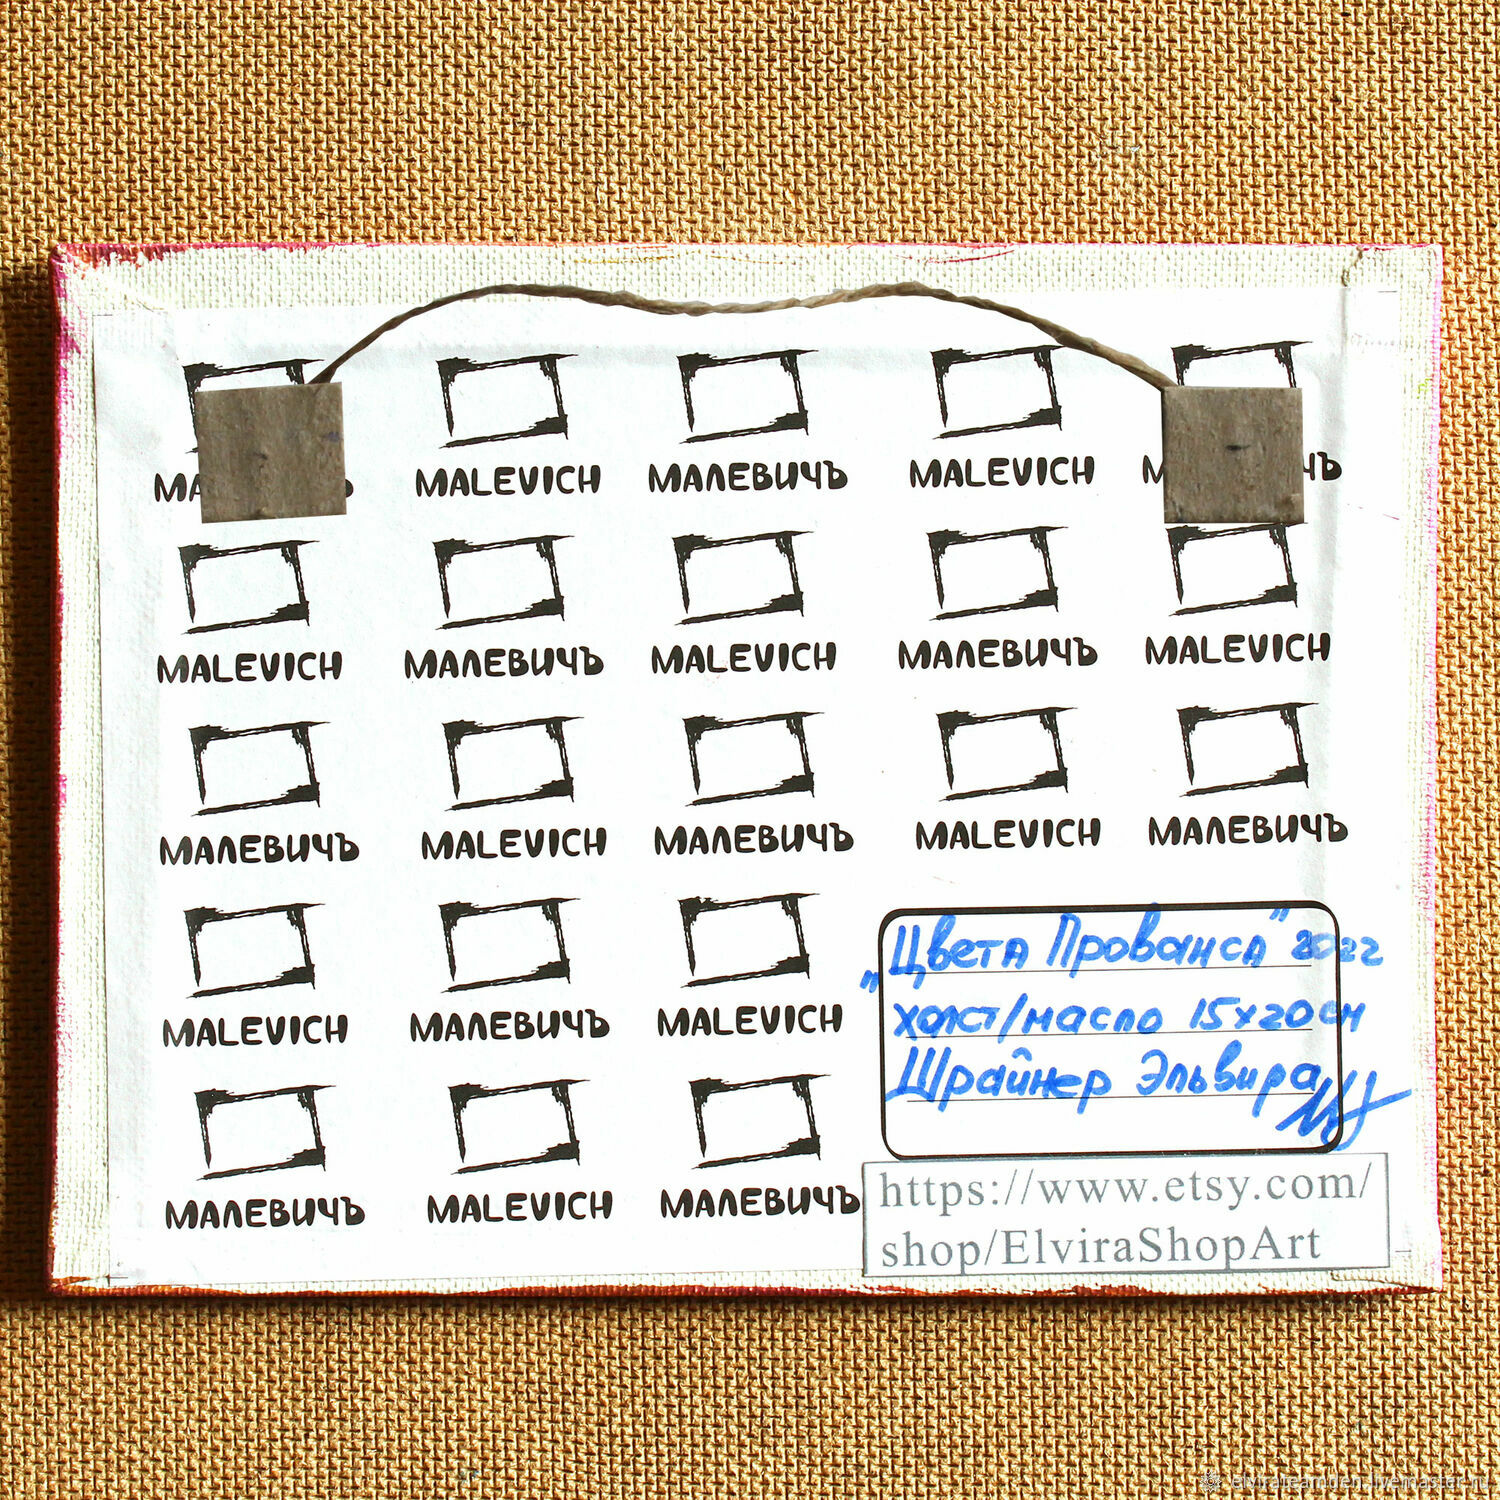 MALEVICH МАЛЕВИЧЪ MALEVICH
MALEVICH МАЛЕВИЧЪ MALEVICH МАЛЕВИЧЪ MALEVICH
МАЛЕВИЧЪ MALEVICH МАЛЕВИЧЪ MALEVICH МАЛЕВИЧЪ
MALEVICH МАЛЕВИЧЪ MALEVICH
МАЛЕВИЧЪ MALEVICH МАЛЕВИЧЪ
„Цвета Прованса" 2022
холст/масло 15х20см
Шрайнер Эльвира
https://www.etsy.com/
shop/ElviraShopArt